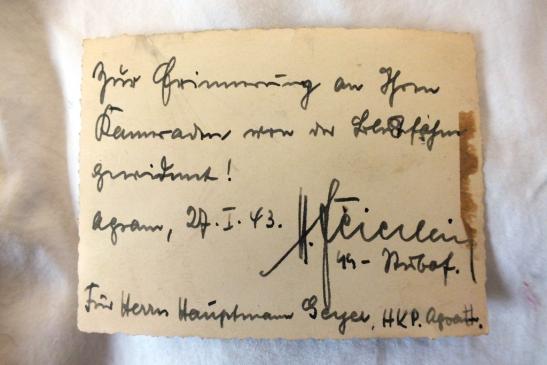 Zur Erinnerung an Ihren
Kameraden von der
gewidmet!
Agram, 27.I.43. H.
SS-Stubaf.
Für Herrn Hauptmann Geyer, HKP. Agram.